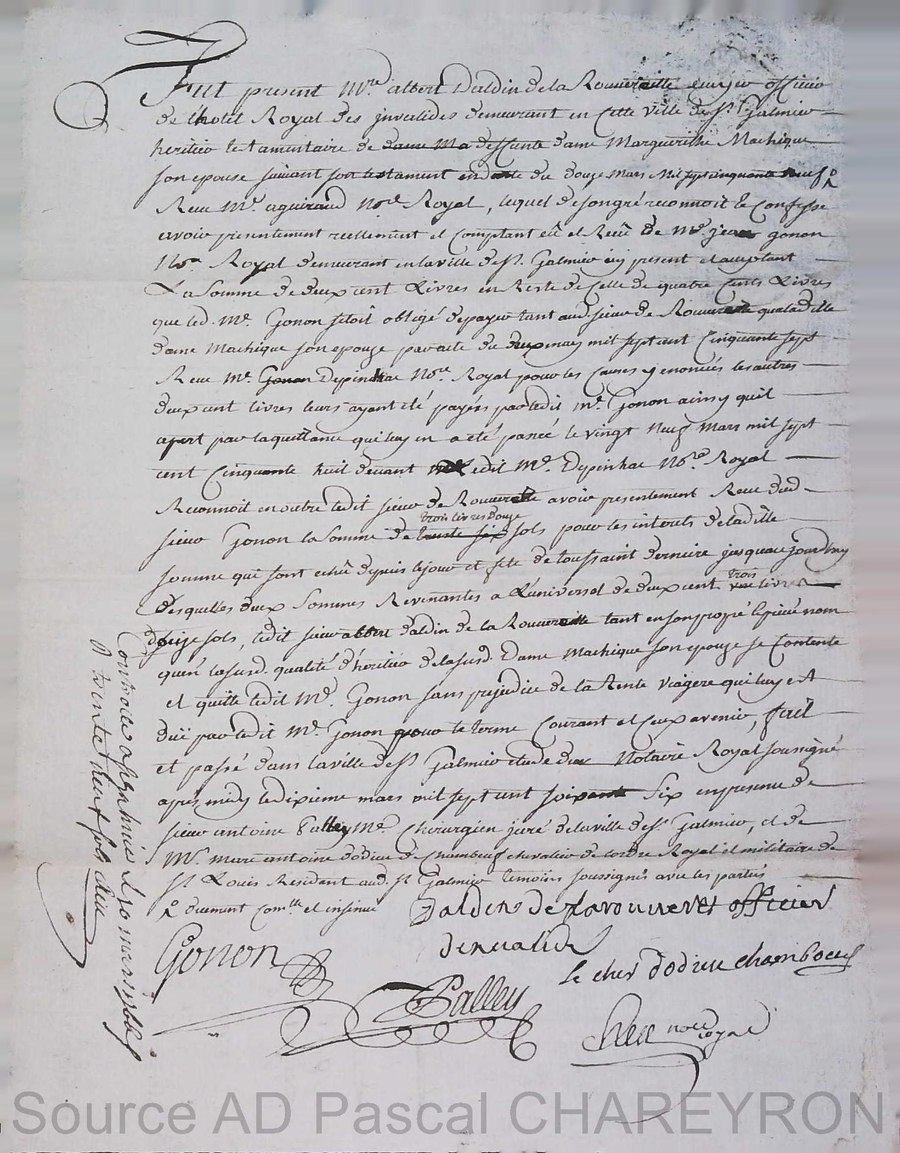 Fut present Mre albert Daldin de la Rouveraitte ecuyer officier
de L'hotel Royal des jnvalides demeurant en Cette ville de St. Galmier
heritier testamentaire de dame Ma deffunte dame Marguerithe Machique
son epouse suivant son testament en date du douze Mars Mil sept cinquante neuf
Receu Me. aguiraud Nore Royal, lequel de son gré reconnoit & Confesse
avoir presentement reellement et Comptant eû et Reçû de Me. jean gonon
Nore Royal demeurant en la ville de St. Galmier cy present et acceptant
La Somme de deux cent Livres en Reste de Celle de quatre Cents Livres
que led. Me. Gonon s'etoit obligé de payer tant aud. sieur de Rouveraitte qua laditte
dame Machique son epouze par acte du deux may mil sept cent Cinquante sept
Receu Me. Gonon Depinhac Nore. Royal pour les Causes y enoncées les autres
deux cent livres leurs ayant été payées par ledit Me. Gonon ainsy quil
apert par la quittance qui luy en a été passée le vingt Neuf Mars mil sept
cent Cinquante huit devant ledit Me. Depinhac Nore Royal
Reconnoit en outre ledit sieur de Rouveraitte avoir presentement Receu dud.
trois livres douze
sieur Gonon la Somme de trente six sols pour les interets de laditte
somme qui sont echû depuis le jour et fête de toussaint derniere jusqua ce jourdhuy
trois
Desquelles deux Sommes Revenantes a L'universel de deux cent livres
douze sols, ledit sieur albert daldin de la Rouveraitte tant en son propre & privé nom
qu'en la susd. qualité d'heritier de la susd. Dame Machique son epouze se Contente
et quitte ledit Me. Gonon sans prejudice de la Rente viagere qui luy est
duë par ledit Me. Gonon pour le terme Courant et Ceux avenir, fait
et passé dans la ville de St. Galmier etude du Notaire Royal soussigné
après midy le dixieme mars mil sept cent soixante Six en presence de
sieur antoine Palley Me. Chirurgien juré de la ville de St. Galmier, et de
Mre. marc antoine dodieu de Chambeuf chevalier de l'ordre Royal et militaire de
St Louis Resident aud. St Galmier temoins soussignés avec les parties
duement Conlle et insinué
Daldin de Larouverett officier
Gonon
dinvalide
le cher dodieu chamboeuf
Palley
nore royal
Controllé a St Galmier Le 10 mars 1766
R trente neuf sols
Source AD Pascal CHAREYRON